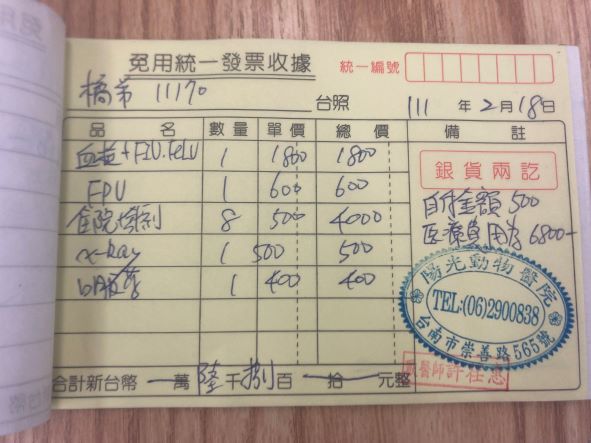 免用統一發票收據
統一編號
橘常 11170 台照
111 年 2 月 18 日
品名 數量 單價 總價 備註
血檢+FIV.FeLV 1 1800 1800
FPV 1 600 600
住院 8 500 4000
x-Ray 1 500 500
口服藥 1 400 400
銀貨兩訖
自付金額 500
医療費用為 6800-
陽光動物醫院
TEL:(06)2900838
台南市崇善路565號
獸醫師許
合計新台幣 萬 陸 千 捌 百 拾 元整